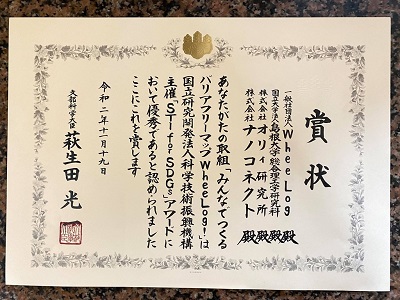 賞状
一般社団法人WheeLog 殿
国立大学法人島根大学総合理工学研究科 殿
株式会社オリィ研究所 殿
株式会社ナノコネクト 殿
あなたがたの取組「みんなでつくる
バリアフリーマップWheeLog!」は
国立研究開発法人科学技術振興機構
主催“STI for SDGs”アワードに
おいて優秀であると認められました
ここにこれを賞します
令和二年十一月十九日
文部科学大臣 萩生田光一